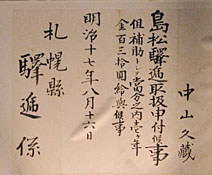 中山久藏
島松驛逓取扱申付候事
但補助トシテ當分之内壱ヶ年
金百三十圓給與候事
明治十七年八月十六日
札幌縣
驛逓係